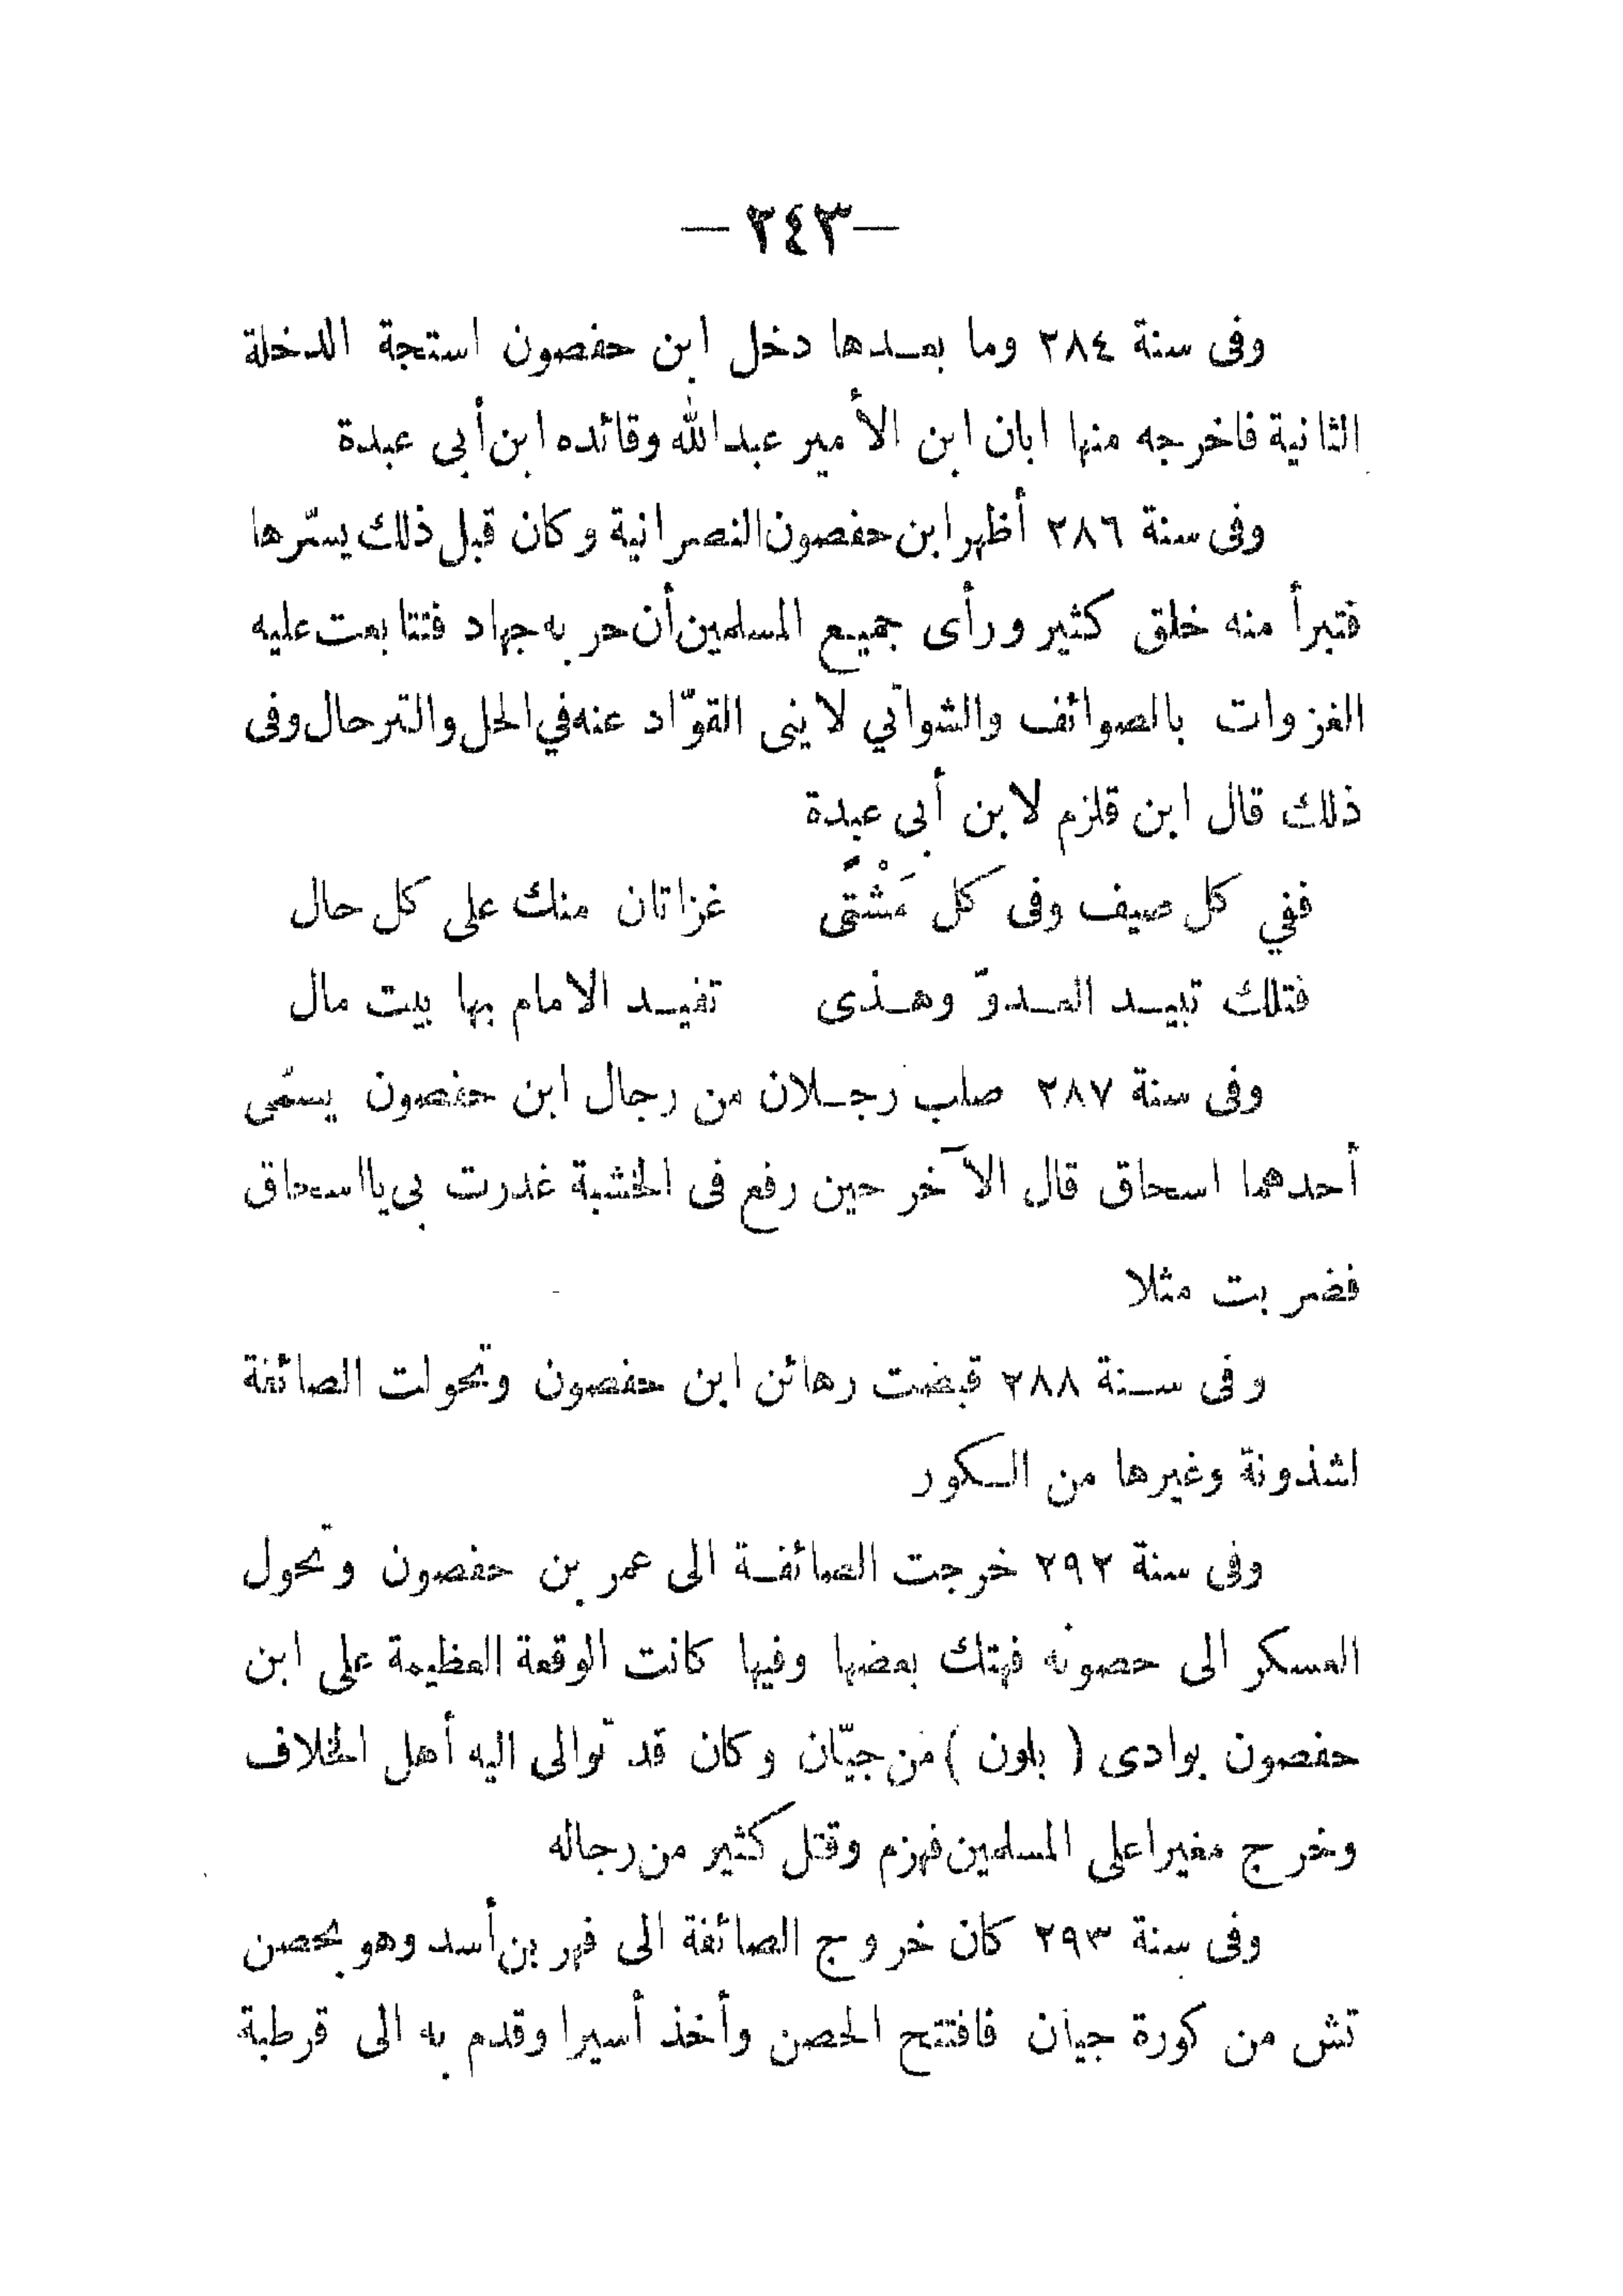 — ٢٤٣ —
وفى سنة ٢٨٤ وما بعدها دخل ابن حفصون استجة الدخلة
الثانية فاخرجه منها ابان ابن الأمير عبد الله وقائده ابن أبى عبدة
وفى سنة ٢٨٦ أظهر ابن حفصون النصرانية وكان قبل ذلك يسترها
فتبرأ منه خلق كثير ورأى جميع المسلمين أن حربه جهاد فتتابعت عليه
الغزوات بالصوائف والشواتي لاينى القوّاد عنه في الحل والترحال وفى
ذلك قال ابن قلزم لابن أبى عبدة
ففي كل صيف وفى كل مَشْتًى غزاتان منك على كل حال
فتلك تبيد العدوّ وهذى تفيد الامام بها بيت مال
وفى سنة ٢٨٧ صلب رجلان من رجال ابن حفصون يسمّى
أحدهما اسحاق قال الآخر حين رفع فى الخشبة غدرت بى يااسحاق
فضربت مثلا
وفى سنة ٢٨٨ قبضت رهائن ابن حفصون وتحولت الصائفة
اشذونة وغيرها من الكور
وفى سنة ٢٩٢ خرجت الصائفة الى عمر بن حفصون وتحول
العسكر الى حصونه فهتك بعضها وفيها كانت الوقعة العظيمة على ابن
حفصون بوادى ( بلون ) من جيّان وكان قد توالى اليه أهل الخلاف
وخرج مغيرا على المسلمين فهزم وقتل كثير من رجاله
وفى سنة ٢٩٣ كان خروج الصائفة الى فهر بن أسد وهو بحصن
تش من كورة جيان فافتتح الحصن وأخذ أسيرا وقدم به الى قرطبة